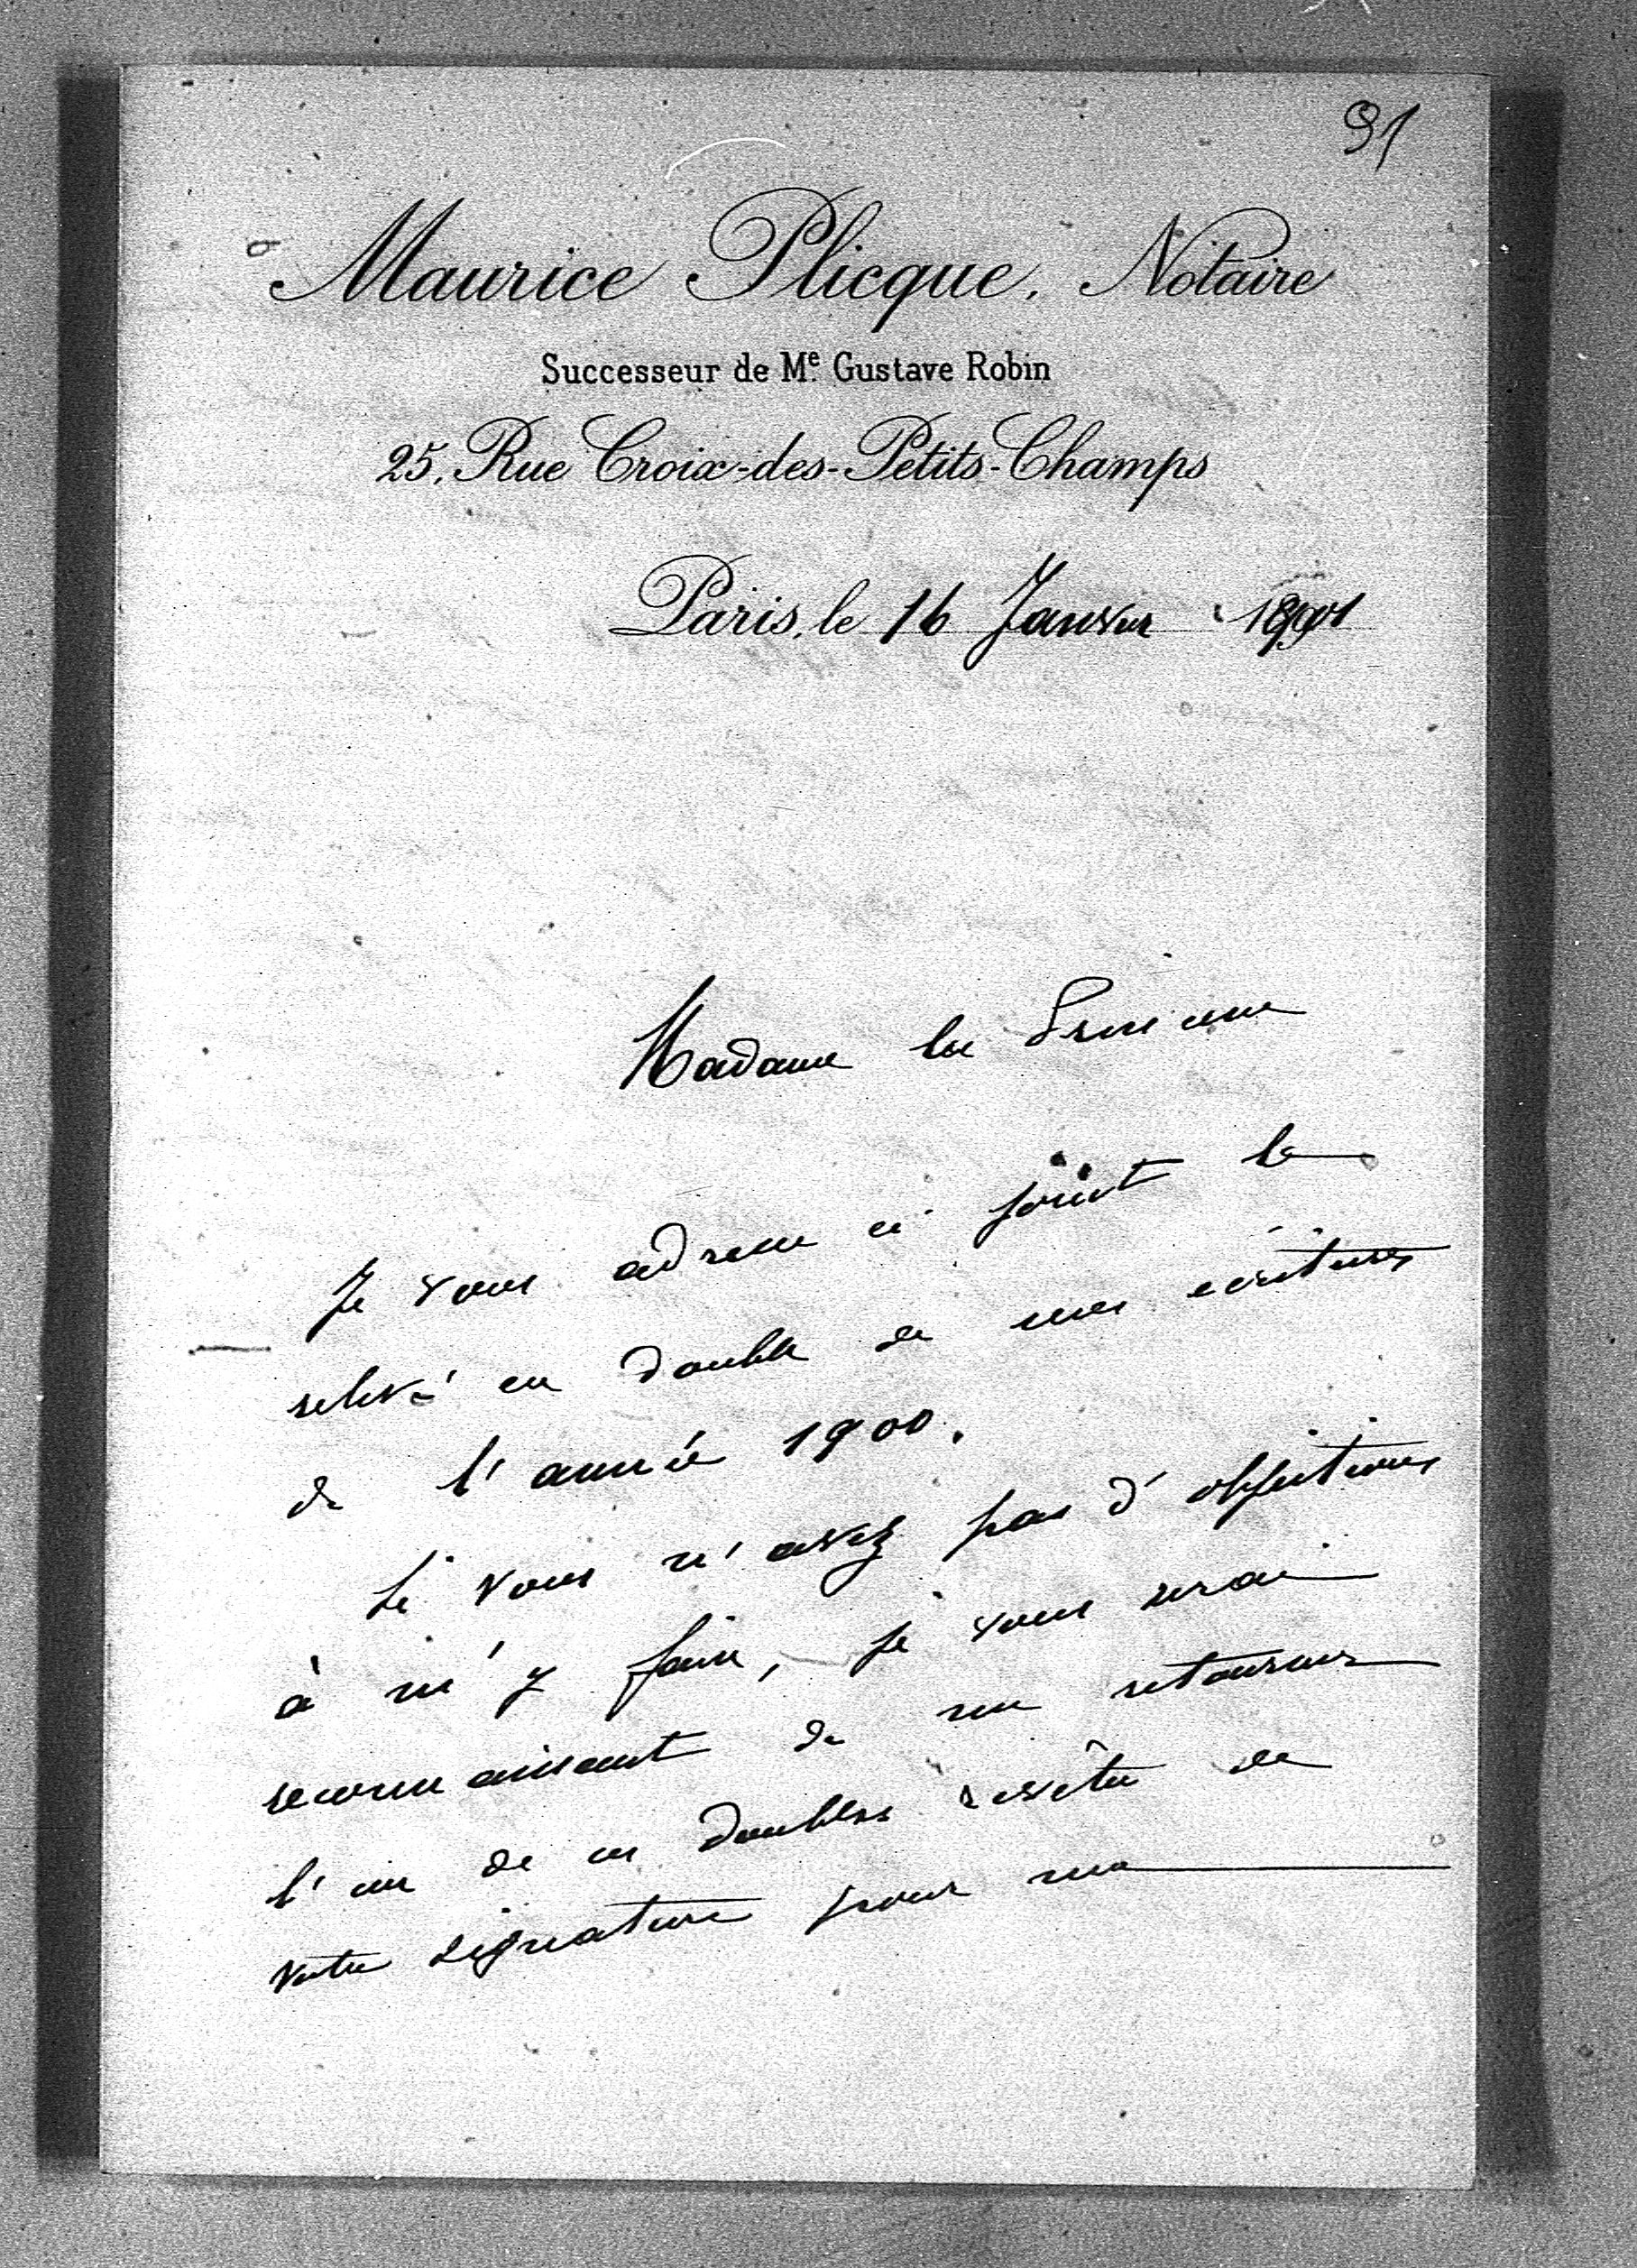 91
Maurice Plicque, Notaire
Successeur de Me. Gustave Robin
25, Rue Croix-des-Petits-Champs
Paris, le 16 Janvier 1901
Madame la Princesse
Je vous adresse ci joint le
relevé en double de mes écritures
de l'année 1900.
Si vous n'avez pas d'objections
à m'y faire, je vous serai
reconnaissant de me retourner
l'un de ces doubles revêtu de
votre signature pour ma